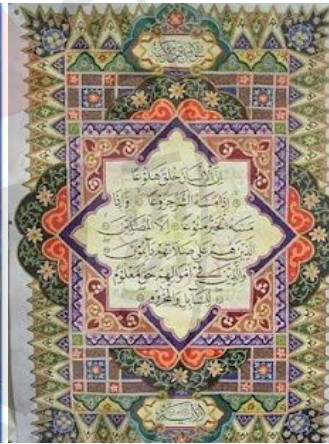 إِنَّ الْإِنْسَانَ خُلِقَ هَلُوعًا
إِذَا مَسَّهُ الشَّرُّ جَزُوعًا وَإِذَا
مَسَّهُ الْخَيْرُ مَنُوعًا إِلَّا الْمُصَلِّينَ
الَّذِينَ هُمْ عَلَىٰ صَلَاتِهِمْ دَائِمُونَ
وَالَّذِينَ فِي أَمْوَالِهِمْ حَقٌّ مَعْلُومٌ
لِلسَّائِلِ وَالْمَحْرُومِ